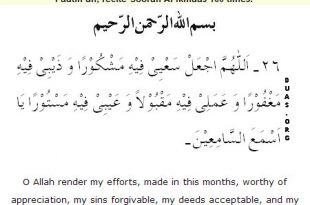 بسم الله الرحمن الرحيم
٢٦ـ اَللّٰهُمَّ اجْعَلْ سَعْيِىْ فِيْهِ مَشْكُوْرًا وَ ذَنْبِىْ فِيْهِ
مَغْفُوْرًا وَ عَمَلِىْ فِيْهِ مَقْبُوْلاً وَ عَيْبِىْ فِيْهِ مَسْتُوْرًا يَا
اَسْمَعَ السَّامِعِيْنَ۔
DUAS.ORG
O Allah render my efforts, made in this months, worthy of
appreciation, my sins forgivable, my deeds acceptable, and my